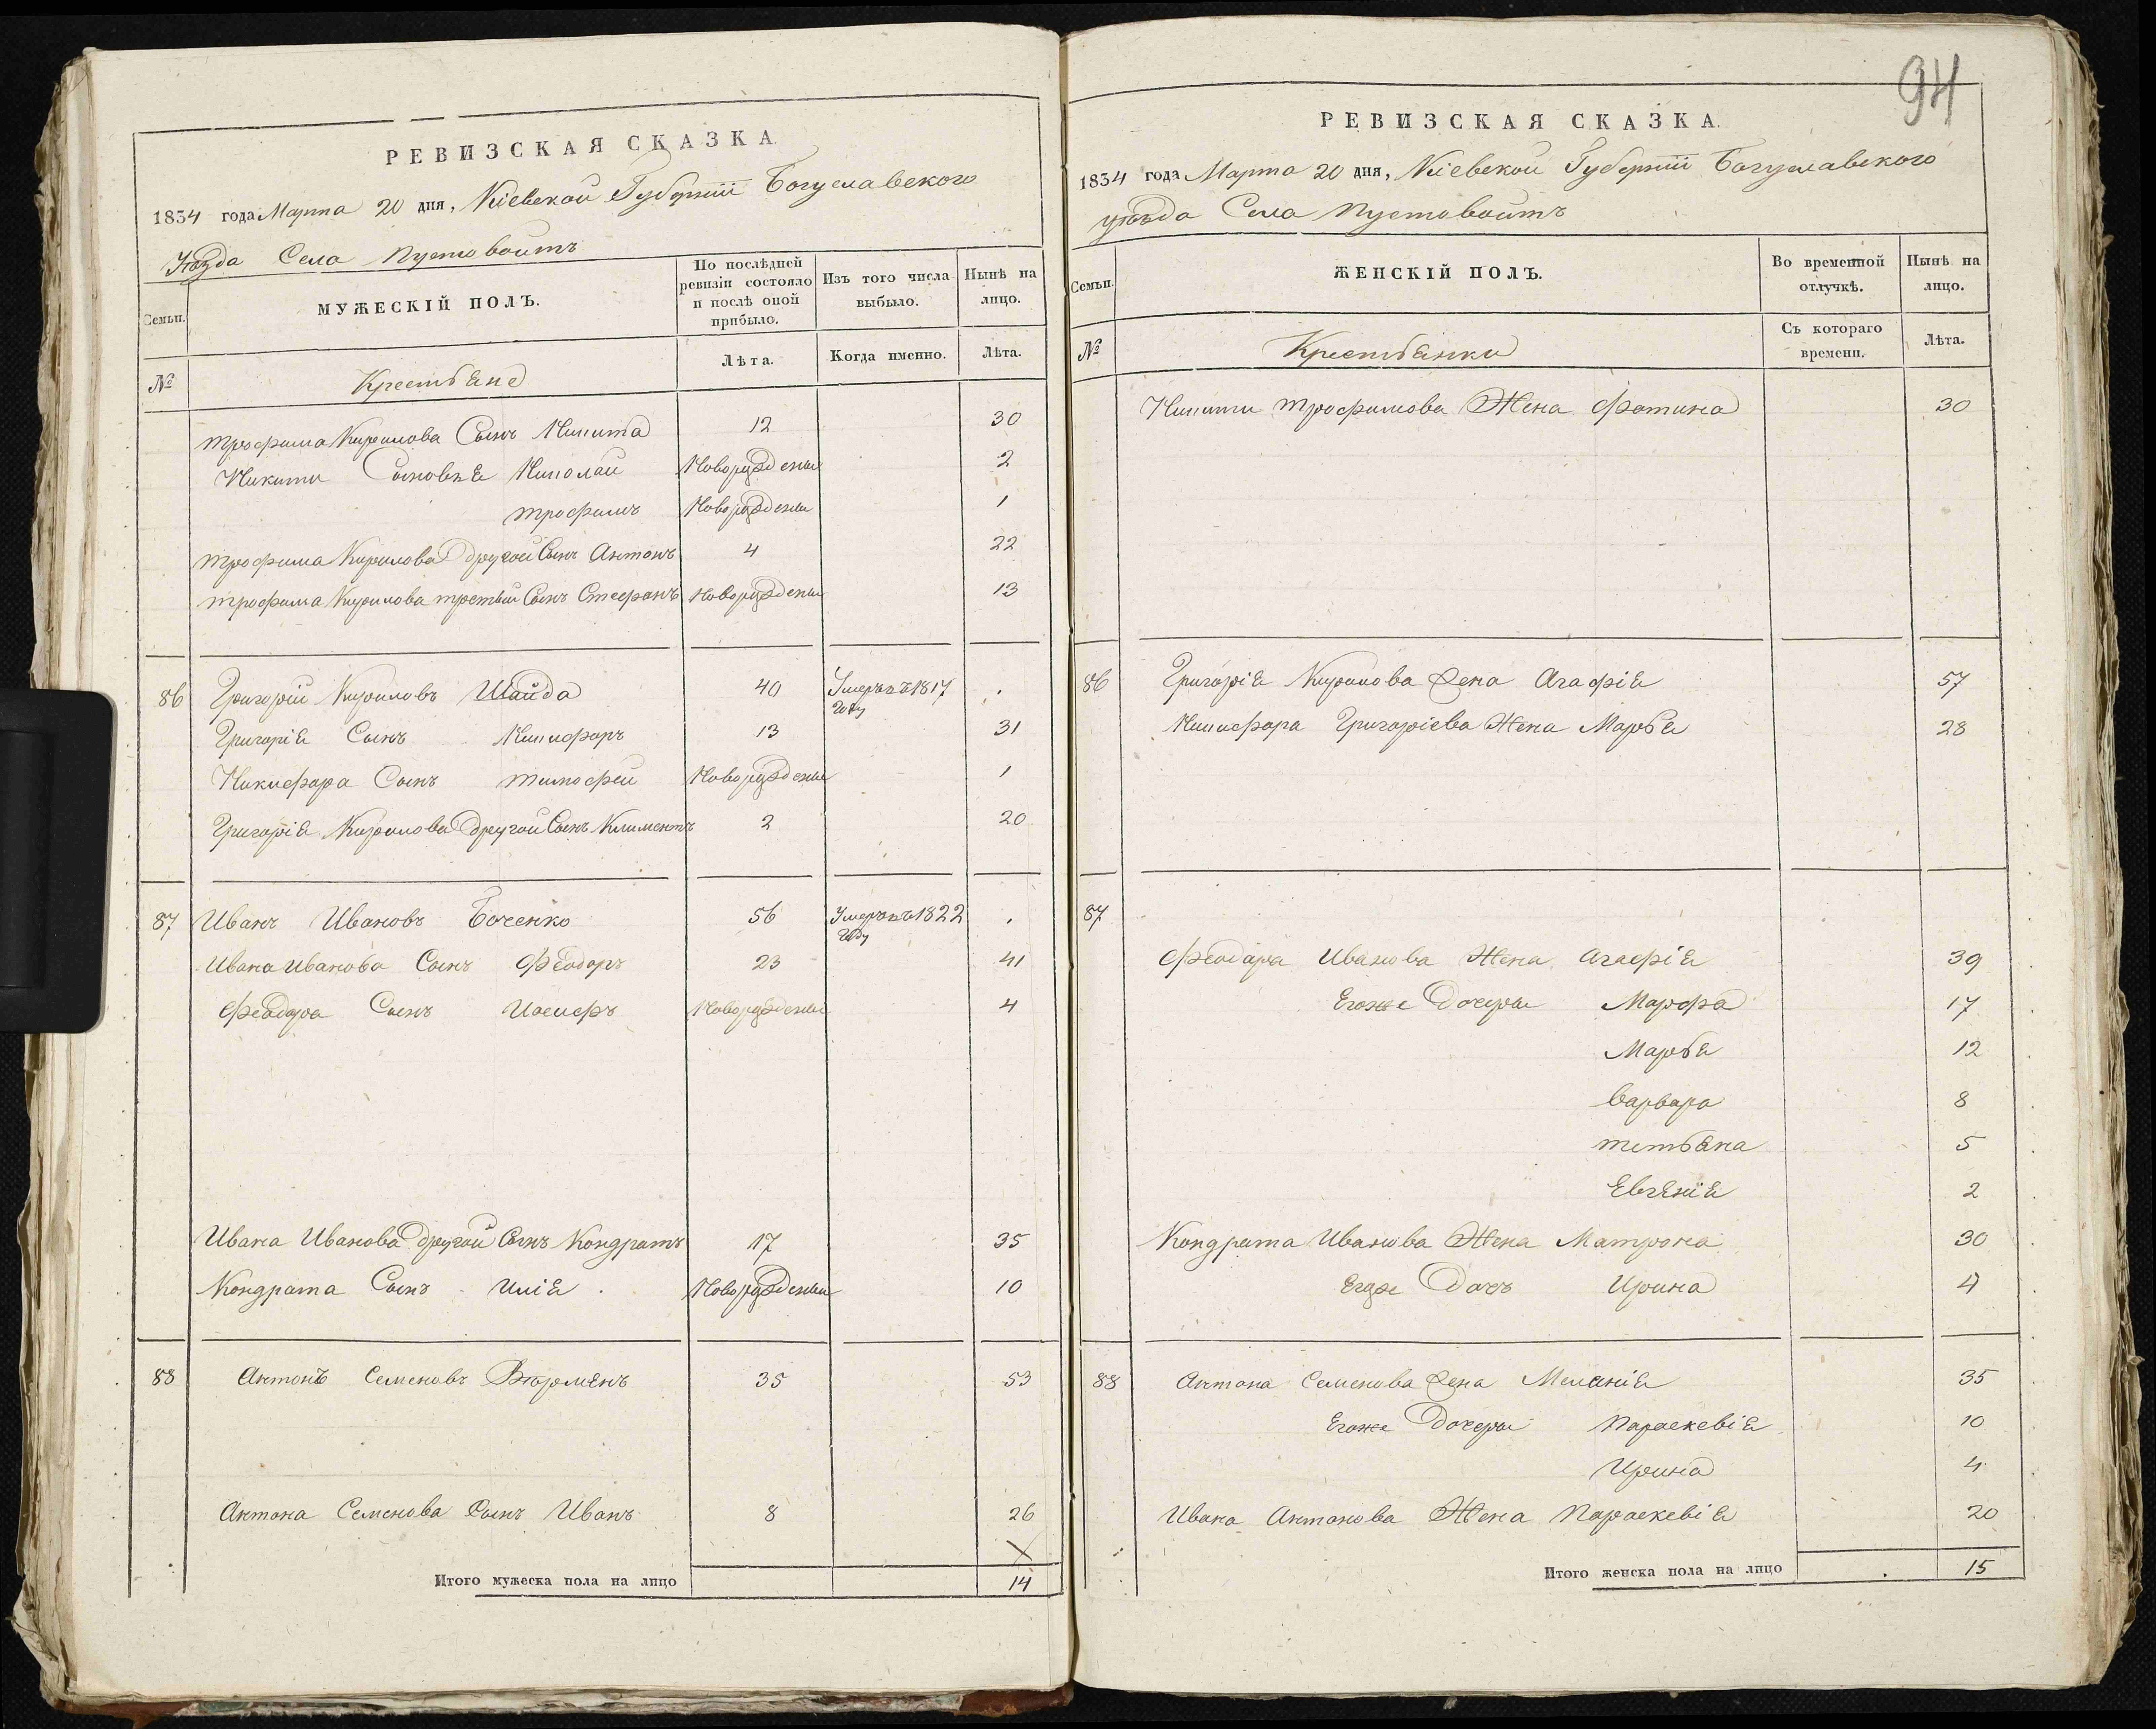 94
РЕВИЗСКАЯ СКАЗКА.
1834 года Марта 20 дня, Кіевской Губерніи Богуславского
Уѣзда Села Пустовойтъ
Семьи.
МУЖЕСКІЙ ПОЛЪ.
По послѣдней ревизіи состояло и послѣ оной прибыло.
Изъ того числа выбыло.
Нынѣ на лицо.
№
Крестьяне
Лѣта.
Когда именно.
Лѣта.
Трофима Кирилова Сынъ Никита 12 30
Никити Сыновья Николай Новорожденны 2
Трофимъ Новорожденны 1
Трофима Кирилова другой Сынъ Антонъ 4 22
Трофима Кирилова третьий Сынъ Стефанъ Новорожденны 13
86 Григорій Кириловъ Шайда 40 Умеръ въ 1817 году .
Григорія Сынъ Никифоръ 13 31
Никифора Сынъ Тимофей Новорожденны 1
Григорія Кирилова другой Сынъ Климентъ 2 20
87 Иванъ Ивановъ Боченко 56 Умеръ въ 1822 году .
Ивана Иванова Сынъ Феодоръ 23 41
Феодора Сынъ Иосифъ Новорожденны 4
Ивана Иванова другой Сынъ Кондратъ 17 35
Кондрата Сынъ Илія Новорожденны 10
88 Антонъ Семеновъ 35 53
Антона Семенова Сынъ Иванъ 8 26
Итого мужеска пола на лицо 14
РЕВИЗСКАЯ СКАЗКА.
1834 года Марта 20 дня, Кіевской Губерніи Богуславского
уѣзда Села Пустовойтъ
Семьи.
ЖЕНСКІЙ ПОЛЪ.
Во временной отлучкѣ.
Нынѣ на лицо.
№
Крестьянки
Съ котораго времени.
Лѣта.
Никити Трофимова Жена Фотина 30
86 Григорія Кирилова Жена Агафія 57
Никифора Григоріева Жена Марья 28
87
Феодора Иванова Жена Агафія 39
Егоже Дочери Марфа 17
Марья 12
Варвара 8
Тетьяна 5
Евгенія 2
Кондрата Иванова Жена Матрона 30
Егоже Дочь Ирина 4
88 Антона Семенова Жена Меланія 35
Егоже Дочери Параскевія 10
Ирина 4
Ивана Антонова Жена Параскевія 20
Итого женска пола на лицо . 15